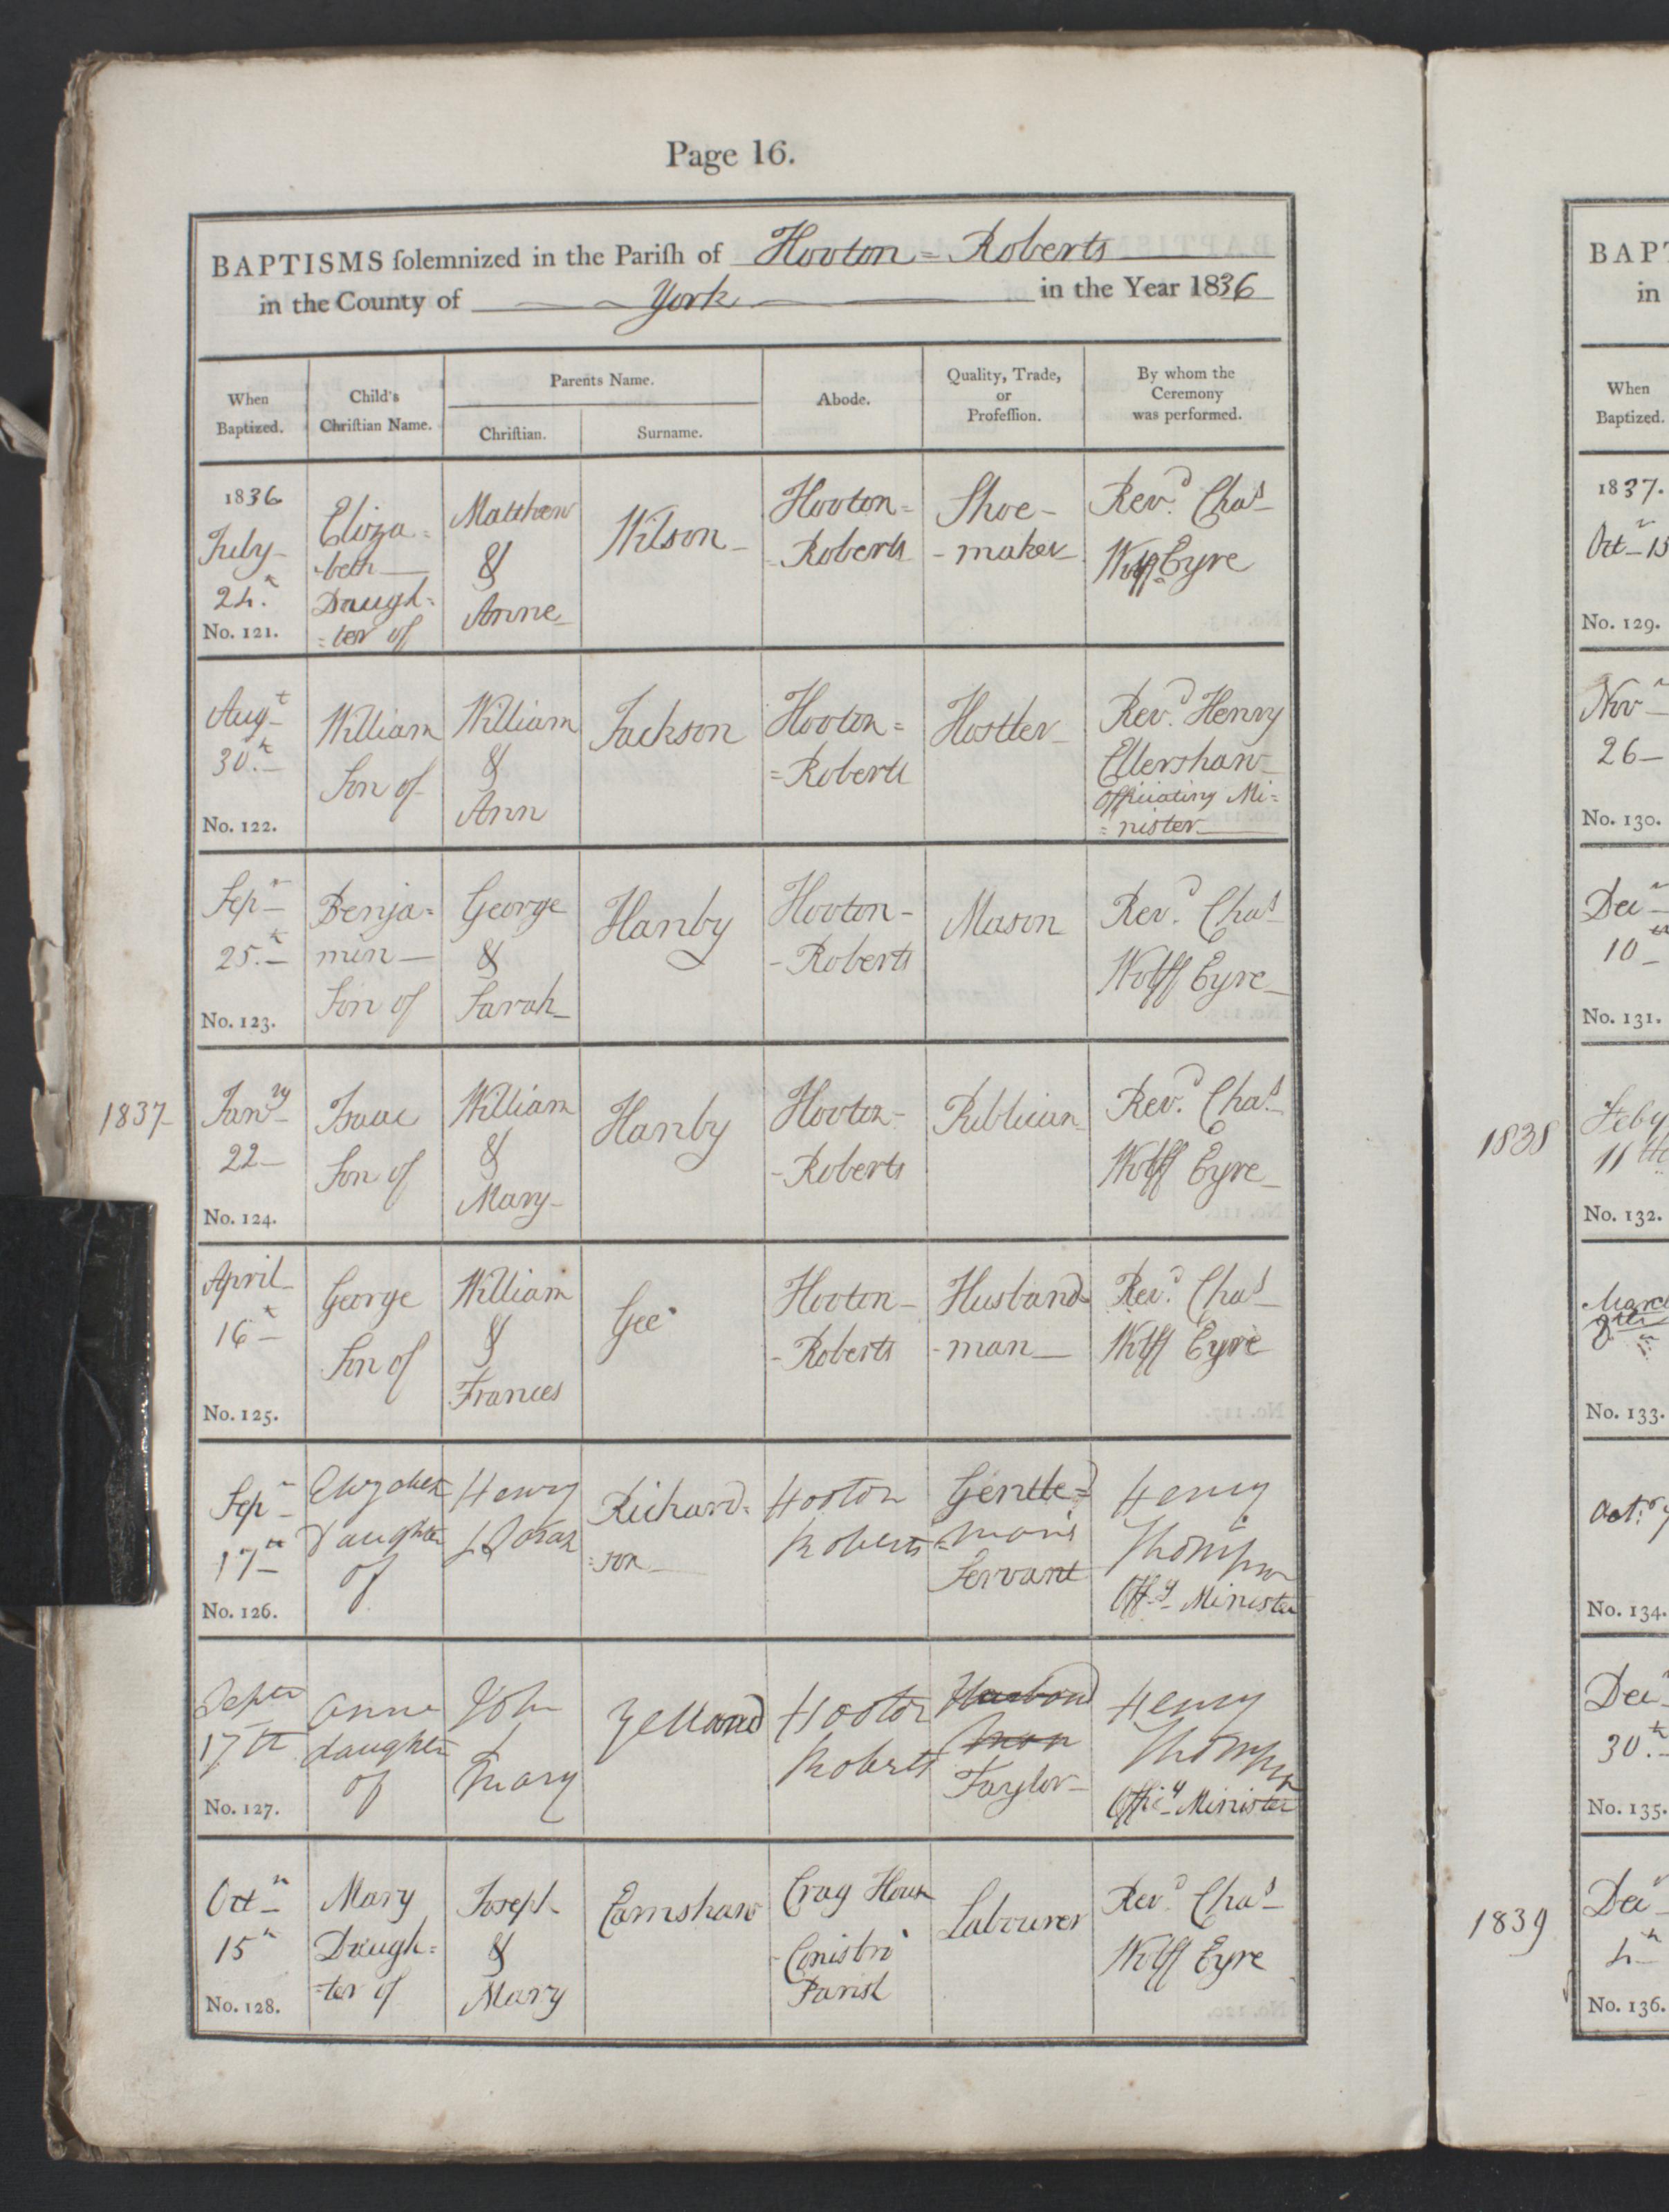 Page 16.
BAPTISMS solemnized in the Parish of Hooton=Roberts
in the County of York in the Year 1836
When Baptized.
Child's Christian Name.
Parents Name.
Christian.
Surname.
Abode.
Quality, Trade, or Profession.
By whom the Ceremony was performed.
1836
July
24.
No. 121.
Eliza=
beth
Daugh=
=ter of
Matthew
&
Anne
Wilson
Hooton=
Roberts
Shoe-
-maker
Revd. Chas
Wolff Eyre
Augt
30th
No. 122.
William
Son of
William
&
Ann
Jackson
Hooton=
=Roberts
Hostler
Revd. Henry
Ellershaw
Officiating Mi=
=nister
Sepr
25th
No. 123.
Benja=
min
Son of
George
&
Sarah
Hanby
Hooton-
-Roberts
Mason
Revd. Chas
Wolff Eyre
1837
Janry
22
No. 124.
Isaac
Son of
William
&
Mary
Hanby
Hooton-
-Roberts
Publican
Revd. Chas
Wolff Eyre
April
16th
No. 125.
George
Son of
William
&
Frances
Gee
Hooton-
-Roberts
Husband-
-man
Revd. Chas
Wolff Eyre
Sepr
17th
No. 126.
Daughter
of
Henry
& Sarah
Richard=
=son
Hooton
Roberts
Gentle=
=man's
Servant
Henry
Thompson
Offg Minister
Septr
17th
No. 127.
Anne
daughter
of
John
&
Mary
Hooton
Roberts
Husband
man
Taylor
Henry
Thompson
Officg Minister
Octr
15th
No. 128.
Mary
Daugh=
=ter of
Joseph
&
Mary
Earnshaw
Crag House
Conisbro'
Parish
Labourer
Revd. Chas
Wolff Eyre
BAPT
in
When
Baptized.
1837.
Octr 15
No. 129.
Novr
26
No. 130.
Decr
10th
No. 131.
1838
Feby
11th
No. 132.
March
No. 133.
Octr 7
No. 134.
Decr
30th
No. 135.
1839
Decr
4th
No. 136.